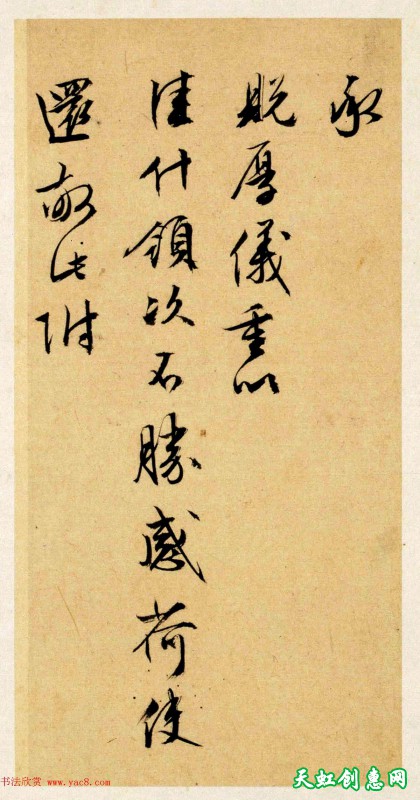 承
贶厚儀重以
佳什領次不勝感荷使
還敬此附
书法欣赏 www.yac8.com
天虹创惠网